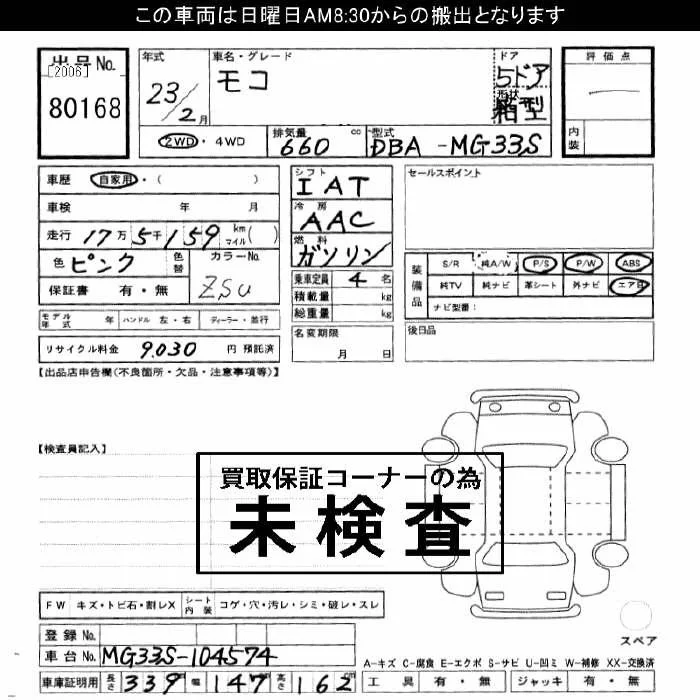 この車両は日曜日AM8:30からの搬出となります
出品No.
[2006]
80168
年式
23/2月
車名・グレード
モコ
ドア
5ドア
形状
箱型
評価点
内装
2WD・4WD
排気量
660 cc
型式
DBA-MG33S
車歴 自家用・( )
車検 年 月
走行 17万5千159 km マイル( )
色 ピンク
色替
カラーNo.
ZSU
保証書 有・無
シフト
IAT
冷房
AAC
燃料
ガソリン
乗車定員 4名
積載量 kg
総重量 kg
名変期限
月 日
セールスポイント
装備品
S/R 純A/W P/S P/W ABS
純TV 純ナビ 革シート 外ナビ エアB
ナビ型番：
後日品
モデル年式 年 ハンドル 左・右 ディーラー・並行
リサイクル料金 9,030 円 預託済
【出品店申告欄(不良箇所・欠品・注意事項等)】
【検査員記入】
買取保証コーナーの為
未検査
FW キズ・トビ石・割レX シート内装 コゲ・穴・汚レ・シミ・破レ・スレ
スペア
登録No.
車台No. MG33S-104574
車庫証明用 長さ 339 幅 147 高さ 162 cm
A-キズ C-腐食 E-エクボ S-サビ U-凹ミ W-補修 XX-交換済
工具 有・無 ジャッキ 有・無